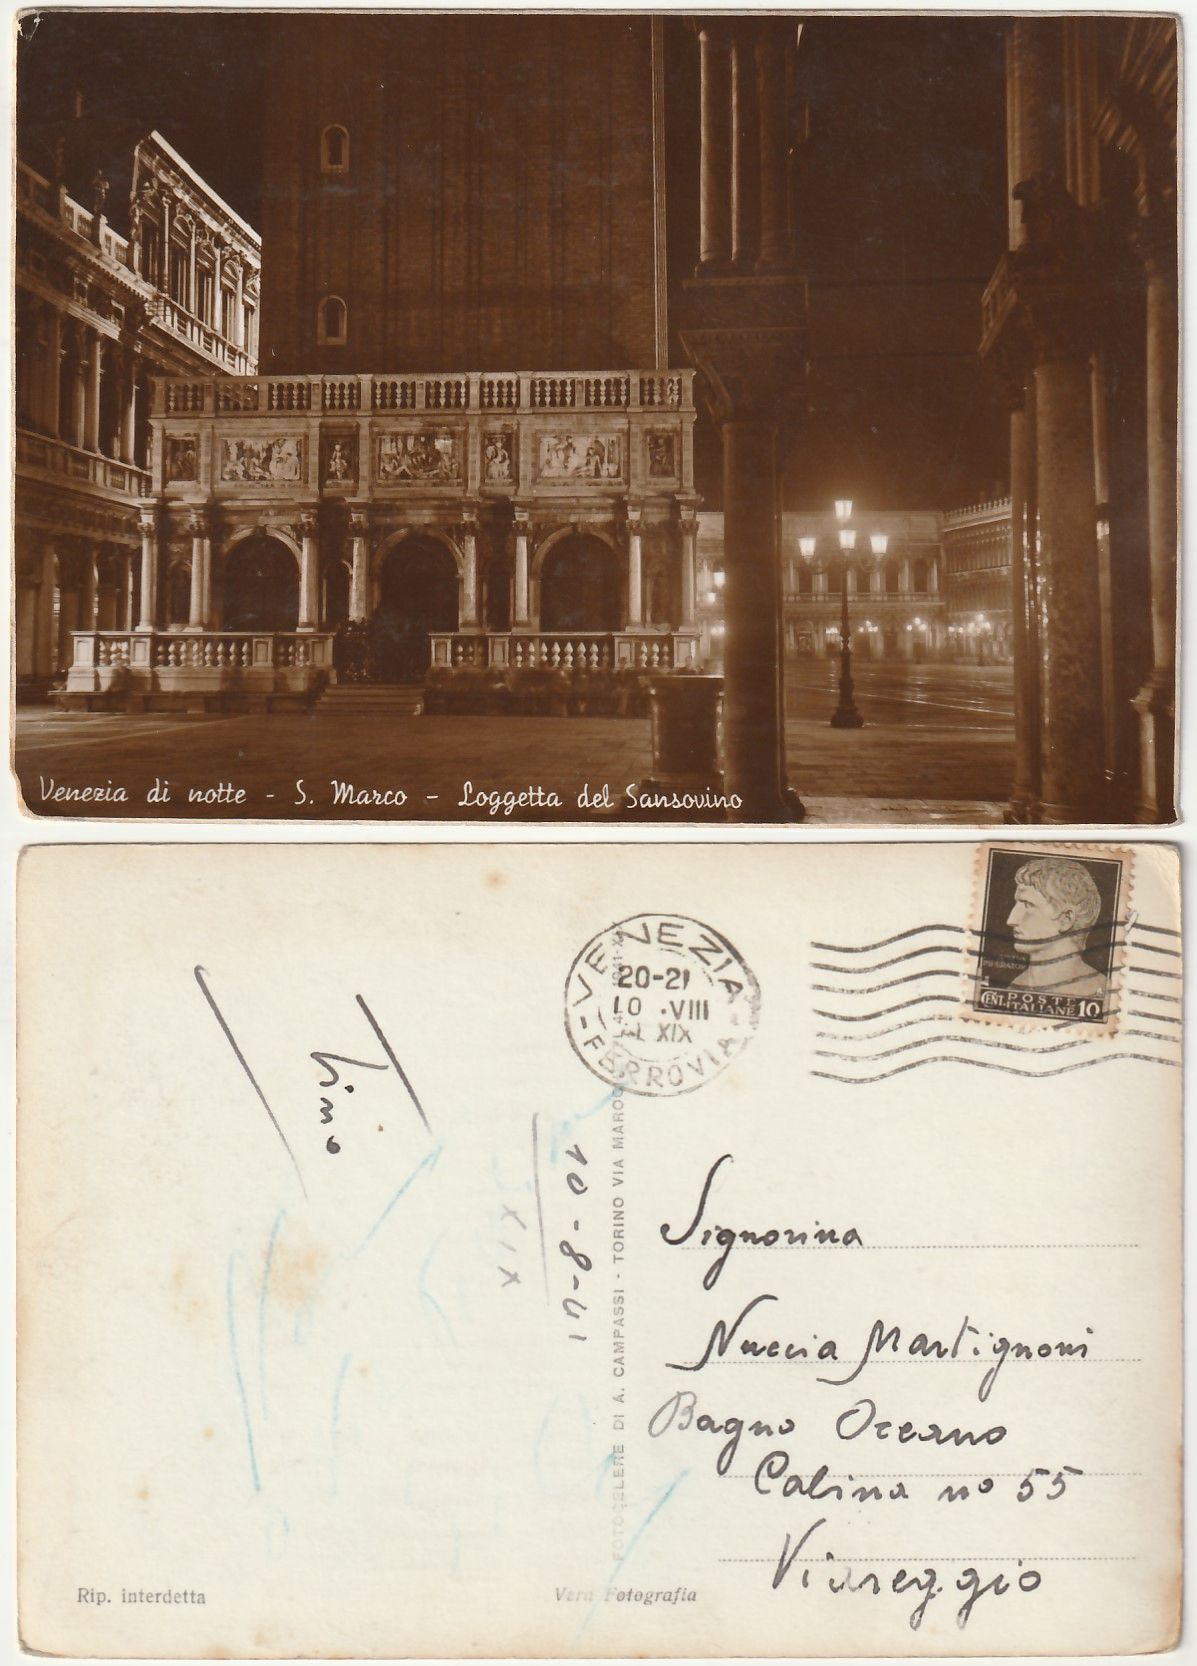 Venezia di notte - S. Marco - Loggetta del Sansovino
VENEZIA
20-21
10 ·VIII
XIX
FERROVIA
POSTE
CENT. ITALIANE 10
10-8-41
XIX
Signorina
Nuccia Martignoni
Bagno Oceano
Cabina nº 55
Viareggio
FOTOCELERE DI A. CAMPASSI - TORINO VIA
Rip. interdetta
Vera Fotografia